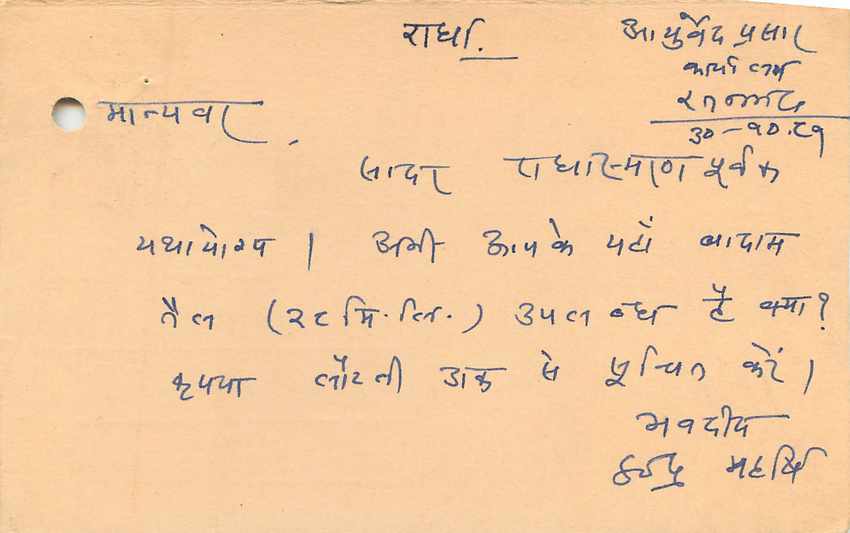 राधा.
आयुर्वेद प्रसार
कार्यालय
रतनगढ़
३०-१०.८१
मान्यवर,
सादर राधास्मरण पूर्वक
यथायोग्य । अभी आपके यहाँ बादाम
तैल (२८ मि.लि.) उपलब्ध है क्या?
कृपया लौटती डाक से सूचित करें ।
भवदीय
महर्षि